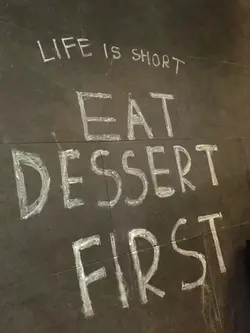 LIFE IS SHORT
EAT
DESSERT
FIRST